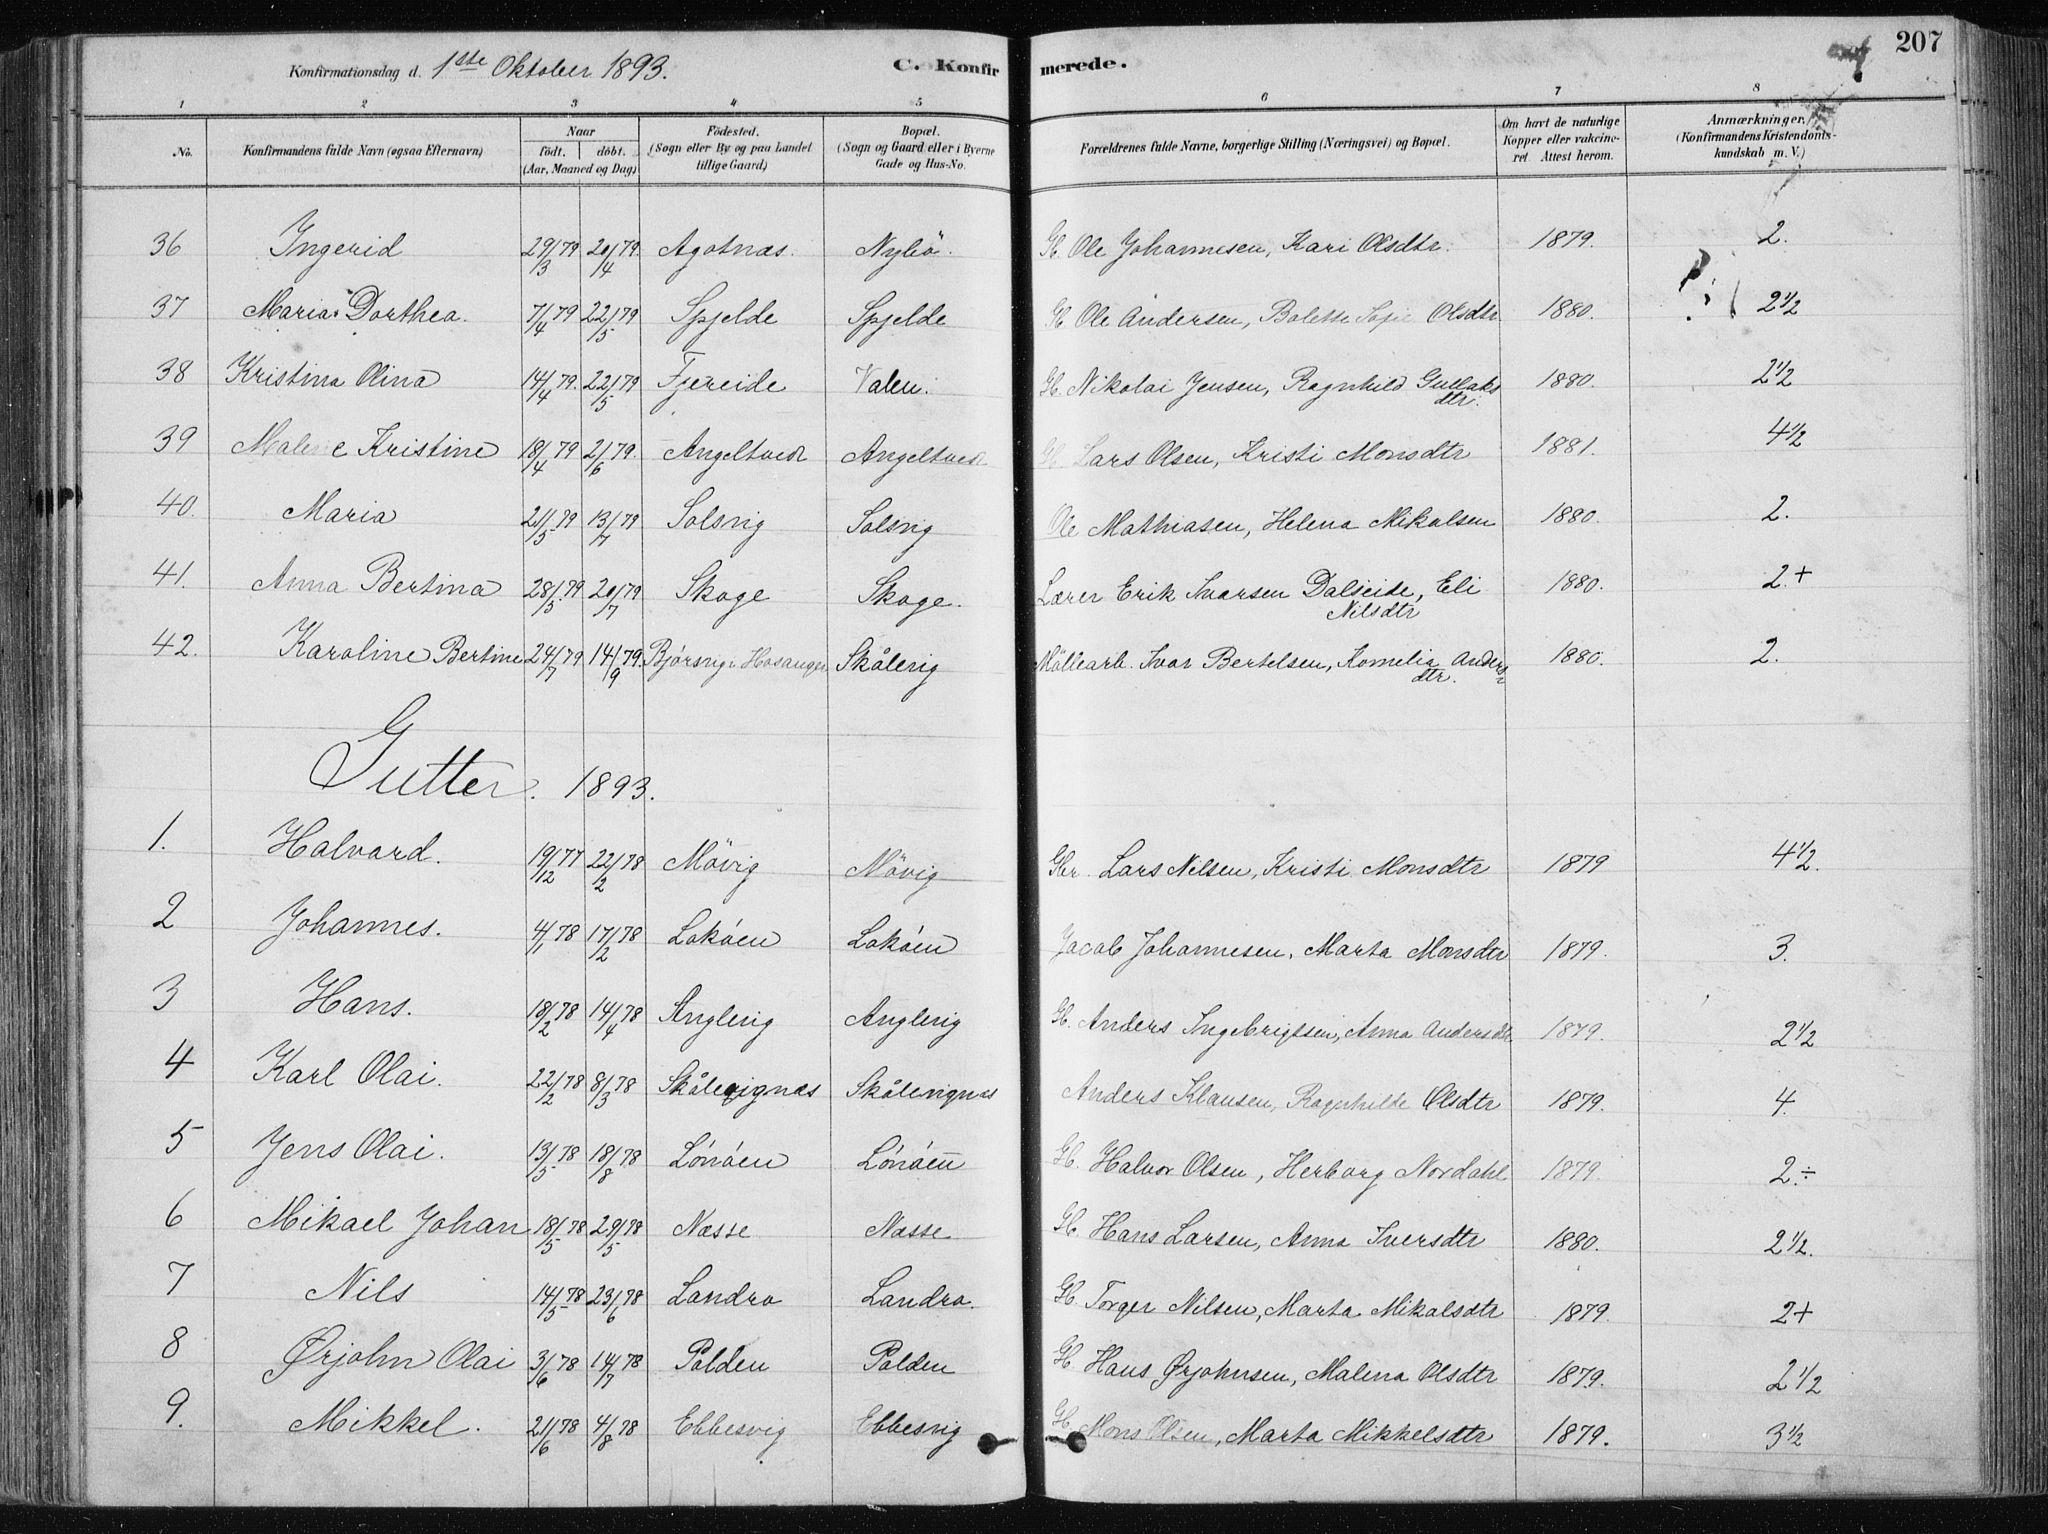 207
Konfirmationsdag d. 1ste Oktober 1893. C. Konfirmerede.
1 2 3 4 5 6 7 8
No. Konfirmandens fulde Navn (ogsaa Efternavn) Naar födt. döbt. (Aar, Maaned og Dag) Födested. (Sogn eller By og paa Landet tillige Gaard) Bopæl. (Sogn og Gaard eller i Byerne Gade og Hus-No. Forældrenes fulde Navne, borgerlige Stilling (Næringsvei) og Bopæl. Om havt de naturlige Kopper eller vakcineret Attest herom. Anmærkninger. (Konfirmandens Kristendomskundskab m. V.)
36 Ingerid 29/3 79 20/4 79. Agotnæs. Nybö. G. Ole Johannesen, Kari Olsdtr. 1879. 2.
37 Maria Dorthea. 7/4 79 22/5 79 Spjelde Spjelde G. Ole Andersen, Bolette Olsdtr 1880. 2 1/2
38 Kristina Olina 14/4 79. 22/5 79 Fjereide Valen. G. Nikolai Jensen, Ragnhild Gullaksdtr. 1880. 2 1/2
39 Malene Kristine 18/4 79 2/6 79. Angeltvedt Angeltvedt G. Lars Olsen, Kristi Monsdtr 1881. 4 1/2
40. Maria 21/5 79 13/7 79 Solsvig Solsvig Ole Mathiasen, Helena Mikalsen 1880. 2.
41. Anna Bertina 28/5 79 20/7 79 Skoge Skoge. Lærer Erik Ivarsen Dalseide, Eli Nilsdtr 1880. 2.+
42. Karoline Bertine 24/7 79 14/9 79. Bjørsvig i Hosanger Skålevig Möllearb. Ivar Bertelsen, Kornelia Andersdtr. 1880. 2.
Gutter. 1893.
1. Halvard. 19/12 77 22/2 78 Mövig Mövig Gbr. Lars Nilsen, Kristi Monsdtr 1879 4 1/2.
2 Johannes. 4/1 78 17/2 78 Lokøen Lokøen Jacob Johannesen, Marta Monsdtr 1879. 3.
3 Hans. 18/2 78 14/4 78 Anglevig Anglevig G. Anders Ingebrigtsen, Anna Andersdtr 1879. 2 1/2
4 Karl Olai. 22/2 78 8/3 78 Skålevignæs Skålevignæs Anders Klausen, Ragnhilde Olsdtr 1879. 4.
5 Jens Olai. 13/5 78 18/8 78 Lønøen Lønøen G. Halvor Olsen, Herborg Nordahl 1879. 2.÷
6 Mikael Johan 18/5 78 29/5 78 Næsse Næsse G. Hans Larsen, Anna Iversdtr 1880. 2 1/2.
7 Nils 14/5 78 23/6 78 Landro Landro. G. Torger Nilsen, Marta Mikalsdtr 1879. 2+
8 Ørjohn Olai 3/6 78 14/7 78 Polden Polden G. Hans Ørjohnsen, Malena Olsdtr 1879. 2 1/2
9. Mikkel. 21/6 78 4/8 78 Ebbesvig Ebbesvig G. Mons Olsen, Marta Mikkelsdtr 1879. 3 1/2